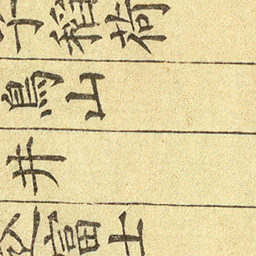 稲荷
鳥山
井
富士